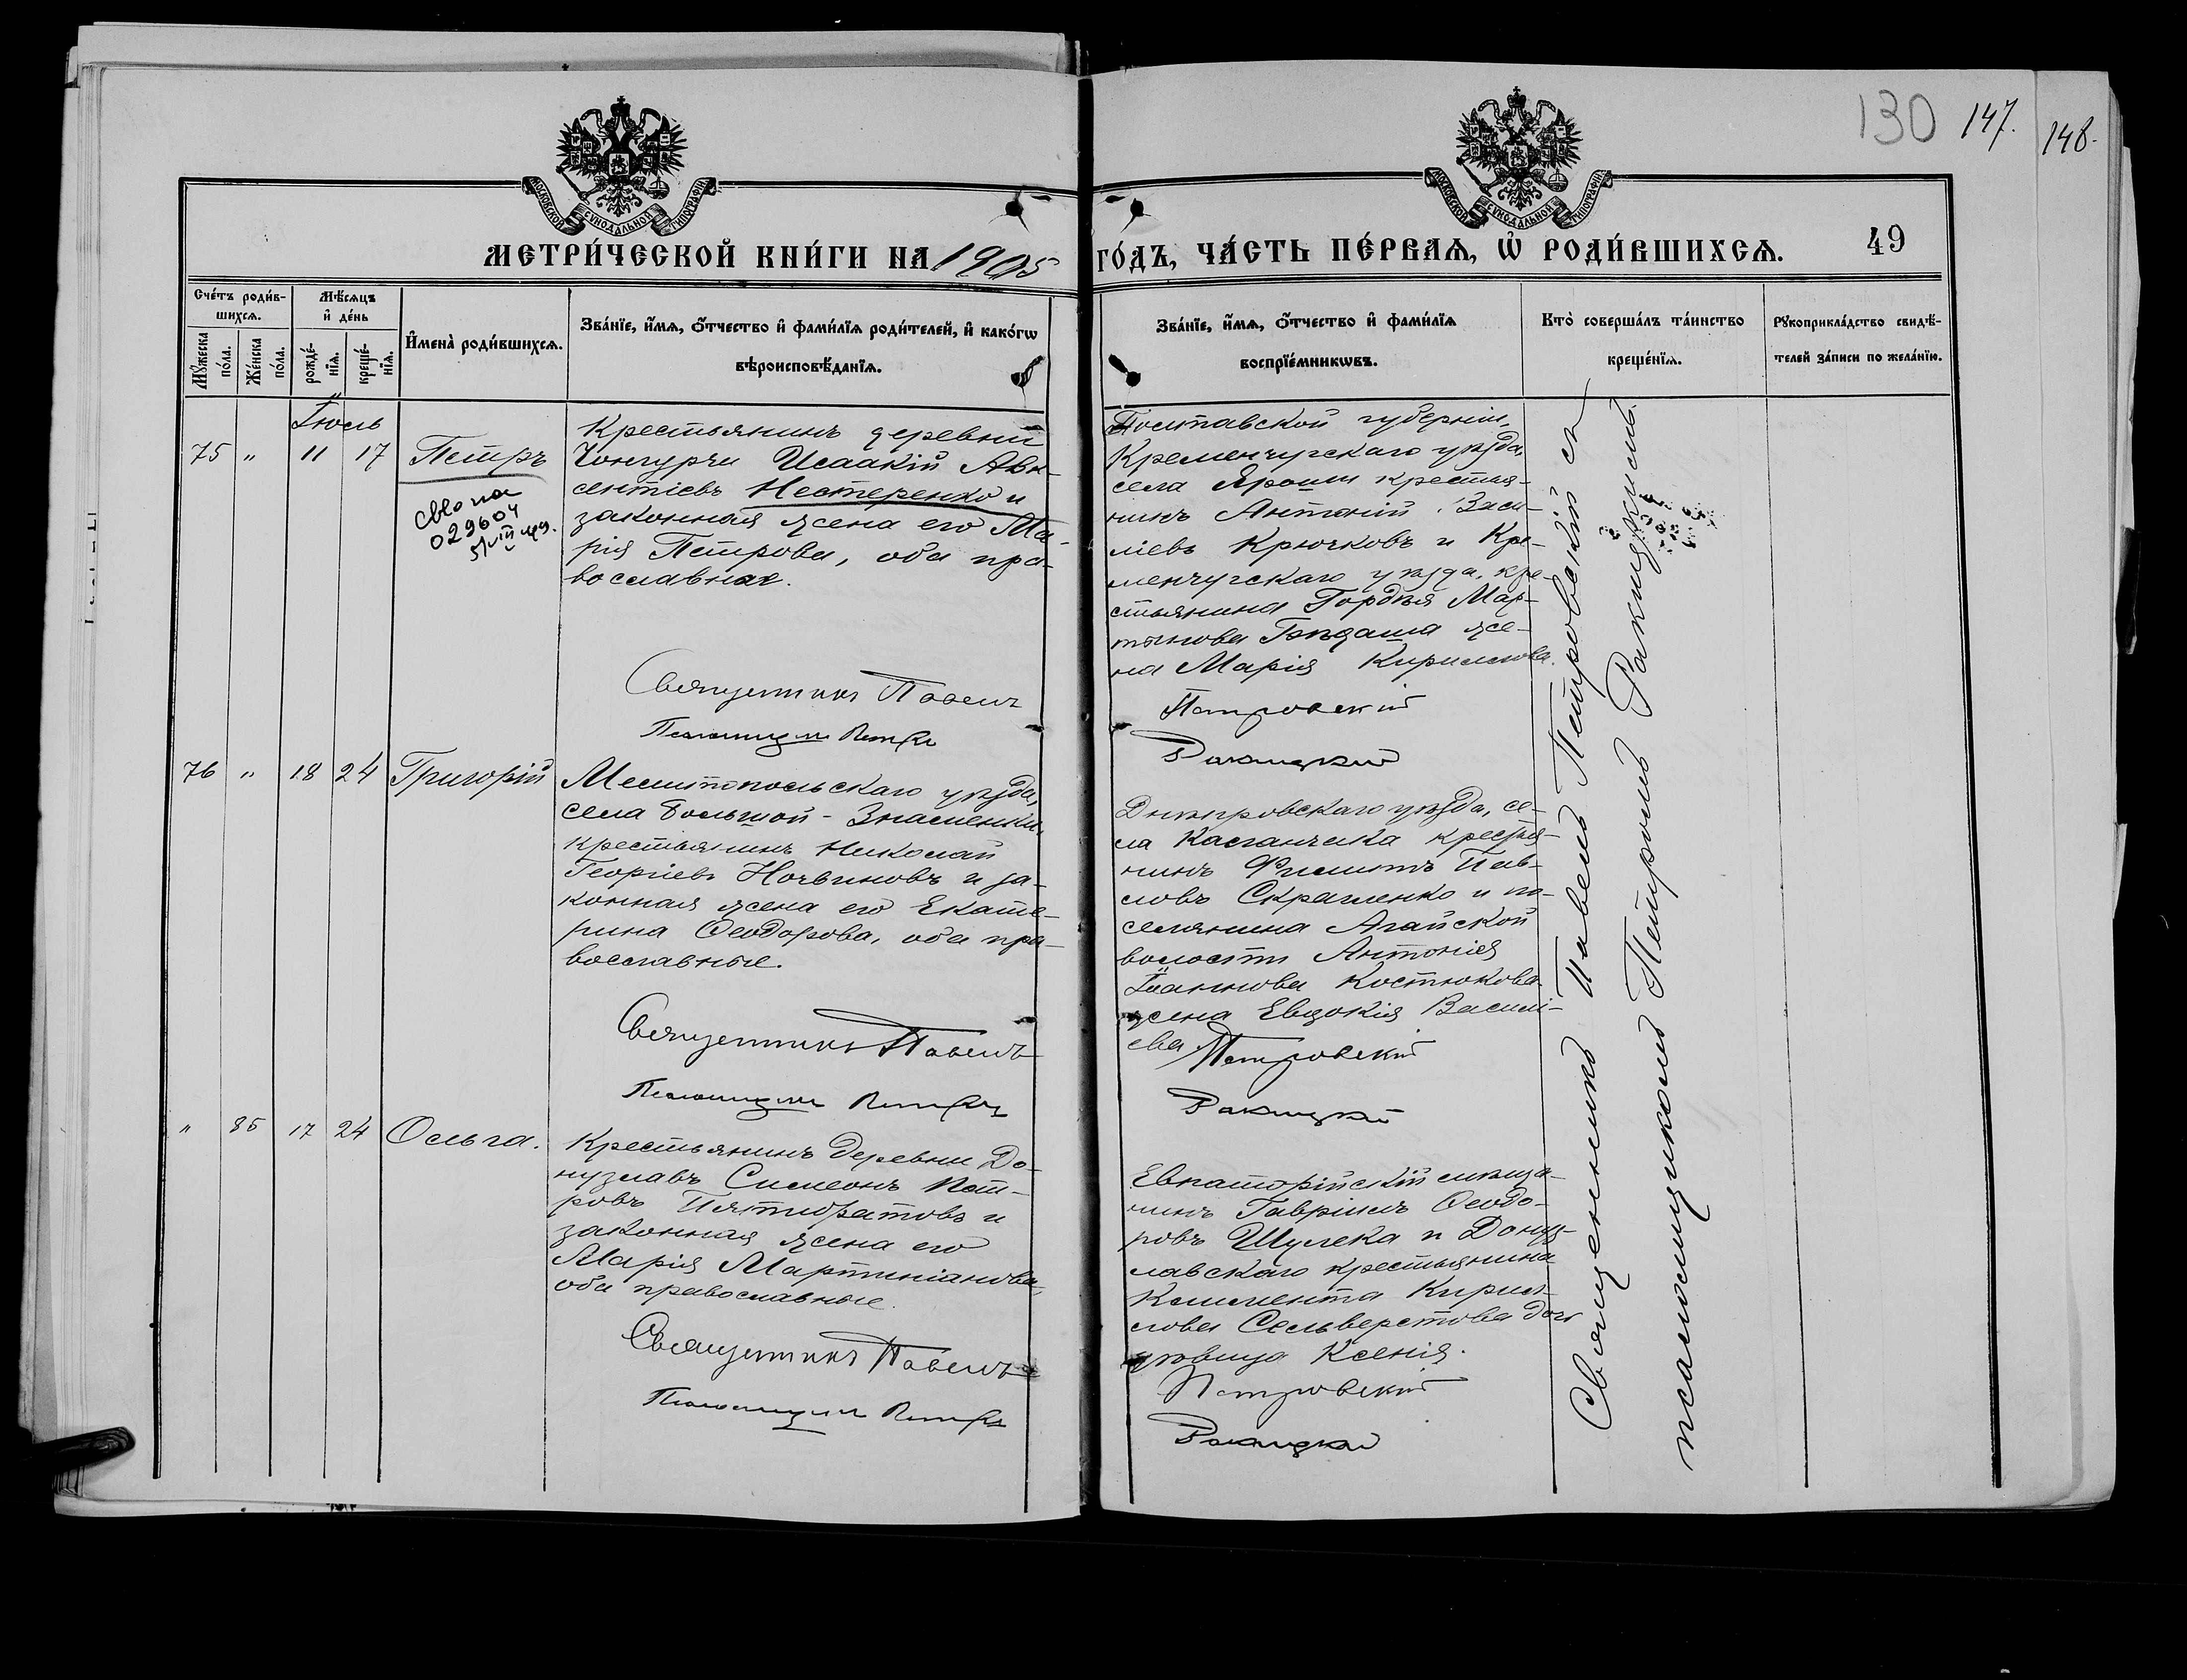 130 147. 148.
МОСКОВСКОЙ СѴНОДАЛЬНОЙ ТИПОГРАФІИ
МОСКОВСКОЙ СѴНОДАЛЬНОЙ ТИПОГРАФІИ
МЕТРИ́ЧЕСКОЙ КНИ́ГИ НА 1905
ГО́ДЪ, ЧА́СТЬ ПЕ́РВАѦ, Ѡ҆ РОДИ́ВШИХСѦ. 49
Сче́тъ роди́в-
шихсѧ.
Мꙋ́жеска по́ла.
Же́нска по́ла.
Мѣ́сѧцъ
и҆ де́нь
рожде́-
нїѧ.
креще́-
нїѧ.
И҆мена̀ роди́вшихсѧ.
Зва́нїе, и҆́мѧ, ѻ҆́тчество и҆ фами́лїѧ роди́телей, и҆ како́гѡ
вѣроисповѣ́данїѧ.
Зва́нїе, и҆́мѧ, ѻ҆́тчество и҆ фами́лїѧ
воспрїе́мникѡвъ.
Кто̀ соверша́лъ та́инство
креще́нїѧ.
Рꙋкоприкла́дство свидѣ́-
телей за́писи по жела́нїю.
Іюль
75 " 11 17 Петръ
029604
Крестьянинъ деревни
Чонгурчи Исаакій Авк-
сентіевъ Нестеренко и
законная жена его Ма-
рія Петрова, оба пра-
вославные.
Священникъ Павелъ
Псаломщикъ Петръ
Полтавской губерніи,
Кременчугскаго уѣзда,
села Ярошы крестья-
нинъ Антоній Васи-
ліевъ Крючковъ и Кре-
менчугскаго уѣзда, кре-
стьянина Гордѣя Мар-
тынова жe-
на Марія Кириллова.
Петровскій
Ракицкій
76 " 18 24 Григорій
Мелитопольскаго уѣзда,
села Большой-Знаменки,
крестьянинъ Николай
Георгіевъ Ночвиновъ и за-
конная жена его Екате-
рина Ѳеодорова, оба пра-
вославные.
Священникъ Павелъ
Псаломщикъ Петръ
Днѣпровскаго уѣзда, се-
ла Каланчака крестья-
нинъ Филиппъ Пав-
ловъ Скрыленко и по-
селянина Агайской
волости Антонія
Іоаннова Костюкова
жена Евдокія Василі-
ева.
Петровскій
Ракицкій
" 85 17 24 Ольга.
Крестьянинъ деревни До-
нузлавъ Симеонъ Пет-
ровъ Пятибратовъ и
законная жена его
Марія Мартиніанова,
оба православные.
Священникъ Павелъ
Псаломщикъ Петръ
Евпаторійскій мѣща-
нинъ Гавріилъ Ѳеодо-
ровъ Шулека и Донуз-
лавскаго крестьянина
Климента Кирил-
лова Сельверстова доч
дѣвица Ксенія.
Петровскій
Ракицкій
Священникъ Павелъ Петровскій съ
псаломщикомъ Петромъ Ракицкимъ.